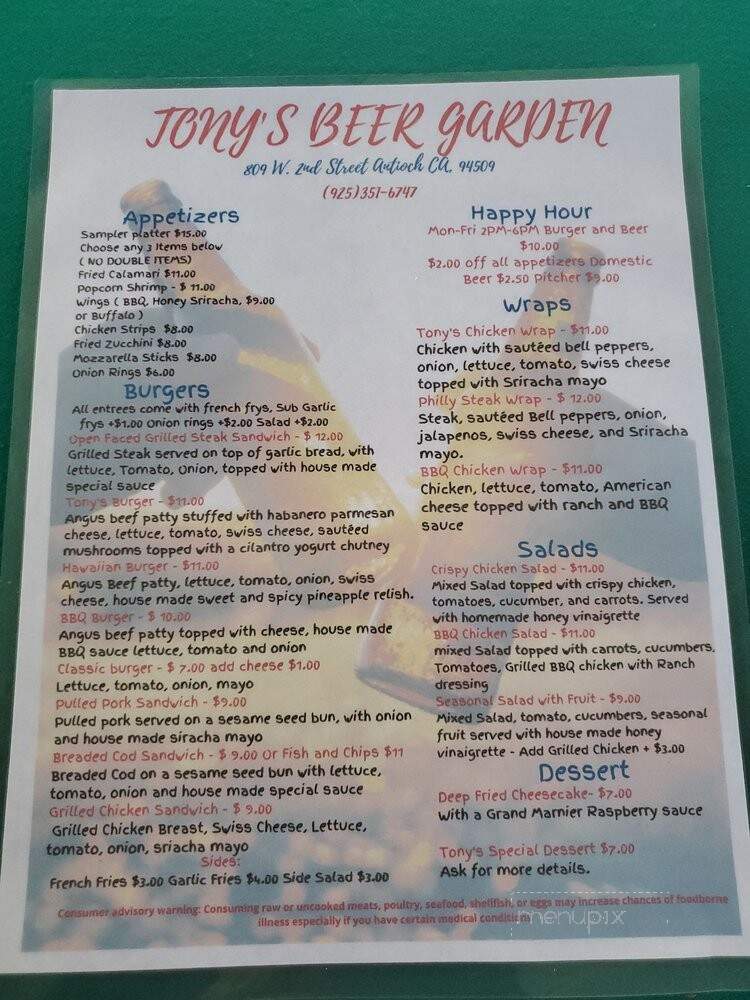 TONY'S BEER GARDEN
809 W. 2nd Street Antioch CA, 94509
(925)351-6747
Appetizers
Sampler platter $15.00
Choose any 3 Items below
( NO DOUBLE ITEMS)
Fried Calamari $11.00
Popcorn Shrimp - $ 11.00
Wings ( BBQ, Honey Sriracha, $9.00
or Buffalo )
Chicken Strips $8.00
Fried Zucchini $8.00
Mozzarella Sticks $8.00
Onion Rings $6.00
Burgers
All entrees come with french frys, Sub Garlic
frys +$1.00 Onion rings +$2.00 Salad +$2.00
Open Faced Grilled Steak Sandwich - $ 12.00
Grilled Steak served on top of garlic bread, with
lettuce, Tomato, Onion, topped with house made
special sauce
Tony's Burger - $11.00
Angus beef patty stuffed with habanero parmesan
cheese, lettuce, tomato, swiss cheese, sautéed
mushrooms topped with a cilantro yogurt chutney
Hawaiian Burger - $11.00
Angus Beef patty, lettuce, tomato, onion, swiss
cheese, house made sweet and spicy pineapple relish.
BBQ Burger - $ 10.00
Angus beef patty topped with cheese, house made
BBQ sauce lettuce, tomato and onion
Classic burger - $ 7.00 add cheese $1.00
Lettuce, tomato, onion, mayo
Pulled Pork Sandwich - $9.00
Pulled pork served on a sesame seed bun, with onion
and house made siracha mayo
Breaded Cod Sandwich - $ 9.00 Or Fish and Chips $11
Breaded Cod on a sesame seed bun with lettuce,
tomato, onion and house made special sauce
Grilled Chicken Sandwich - $ 9.00
Grilled Chicken Breast, Swiss Cheese, Lettuce,
tomato, onion, sriacha mayo
Sides:
French Fries $3.00 Garlic Fries $4.00 Side Salad $3.00
Happy Hour
Mon-Fri 2PM-6PM Burger and Beer
$10.00
$2.00 off all appetizers Domestic
Beer $2.50 Pitcher $9.00
Wraps
Tony's Chicken Wrap - $11.00
Chicken with sautéed bell peppers,
onion, lettuce, tomato, swiss cheese
topped with Sriracha mayo
Philly Steak Wrap - $ 12.00
Steak, sautéed Bell peppers, onion,
jalapenos, swiss cheese, and Sriracha
mayo.
BBQ Chicken Wrap - $11.00
Chicken, lettuce, tomato, American
cheese topped with ranch and BBQ
sauce
Salads
Crispy Chicken Salad - $11.00
Mixed Salad topped with crispy chicken,
tomatoes, cucumber, and carrots. Served
with homemade honey vinaigrette
BBQ Chicken Salad - $11.00
mixed Salad topped with carrots, cucumbers,
Tomatoes, Grilled BBQ chicken with Ranch
dressing
Seasonal Salad with Fruit - $9.00
Mixed Salad, tomato, cucumbers, seasonal
fruit served with house made honey
vinaigrette - Add Grilled Chicken + $3.00
Dessert
Deep Fried Cheesecake- $7.00
With a Grand Marnier Raspberry sauce
Tony's Special Dessert $7.00
Ask for more details.
Consumer advisory warning: Consuming raw or uncooked meats, poultry, seefood, shellfish, or eggs may increase chances of foodborne
illness especially if you have certain medical conditions
menupix